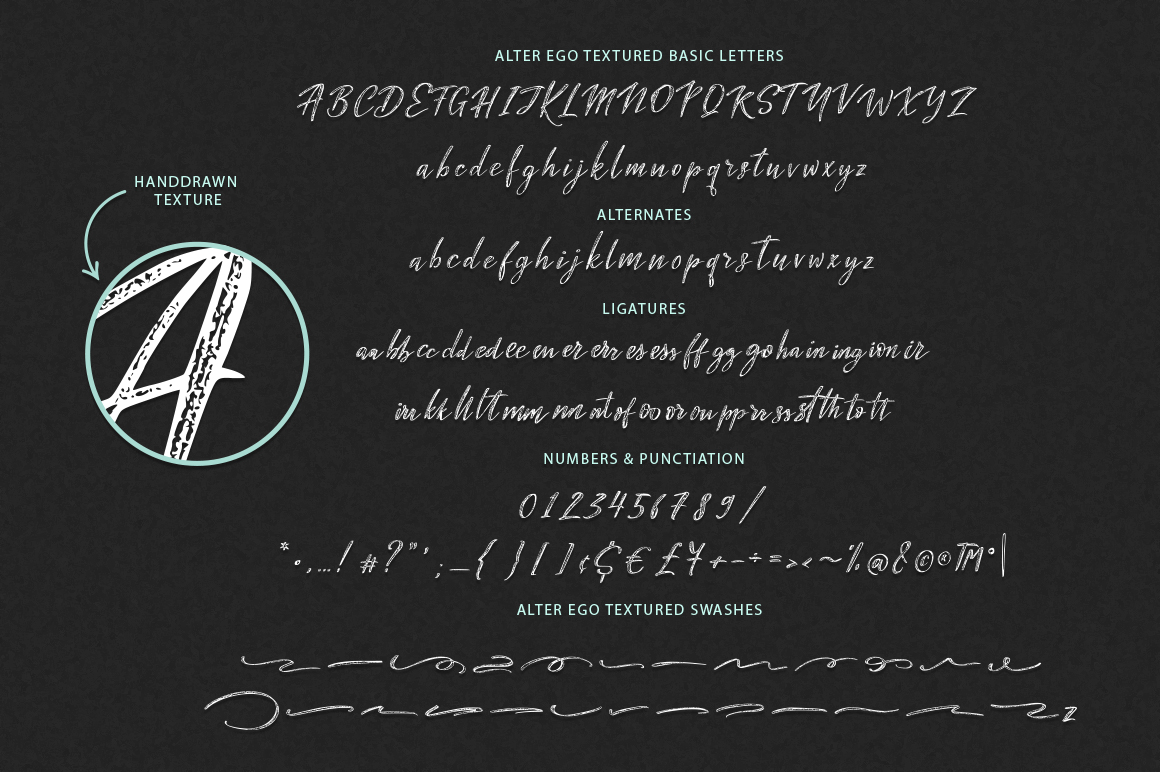 ALTER EGO TEXTURED BASIC LETTERS
ABCDEFGHIJKLMNOPQRSTUVWXYZ
abcdefghijklmnopqrstuvwxyz
HANDDRAWN
TEXTURE
A
ALTERNATES
abcdefghijklmnopqrstuvwxyz
LIGATURES
aa bb cc dd ed ee en er err es ess ff gg go ha in ing ion ir
kk ll lt mm nn nt of oo or ou pp rr ss st th to tt
NUMBERS & PUNCTIATION
0123456789/
* • , … ! # ? ” ’ ; _ { } [ ] ¢ $ € £ ¥ + – ÷ = > < ~ % @ & © ® TM ° |
ALTER EGO TEXTURED SWASHES
z